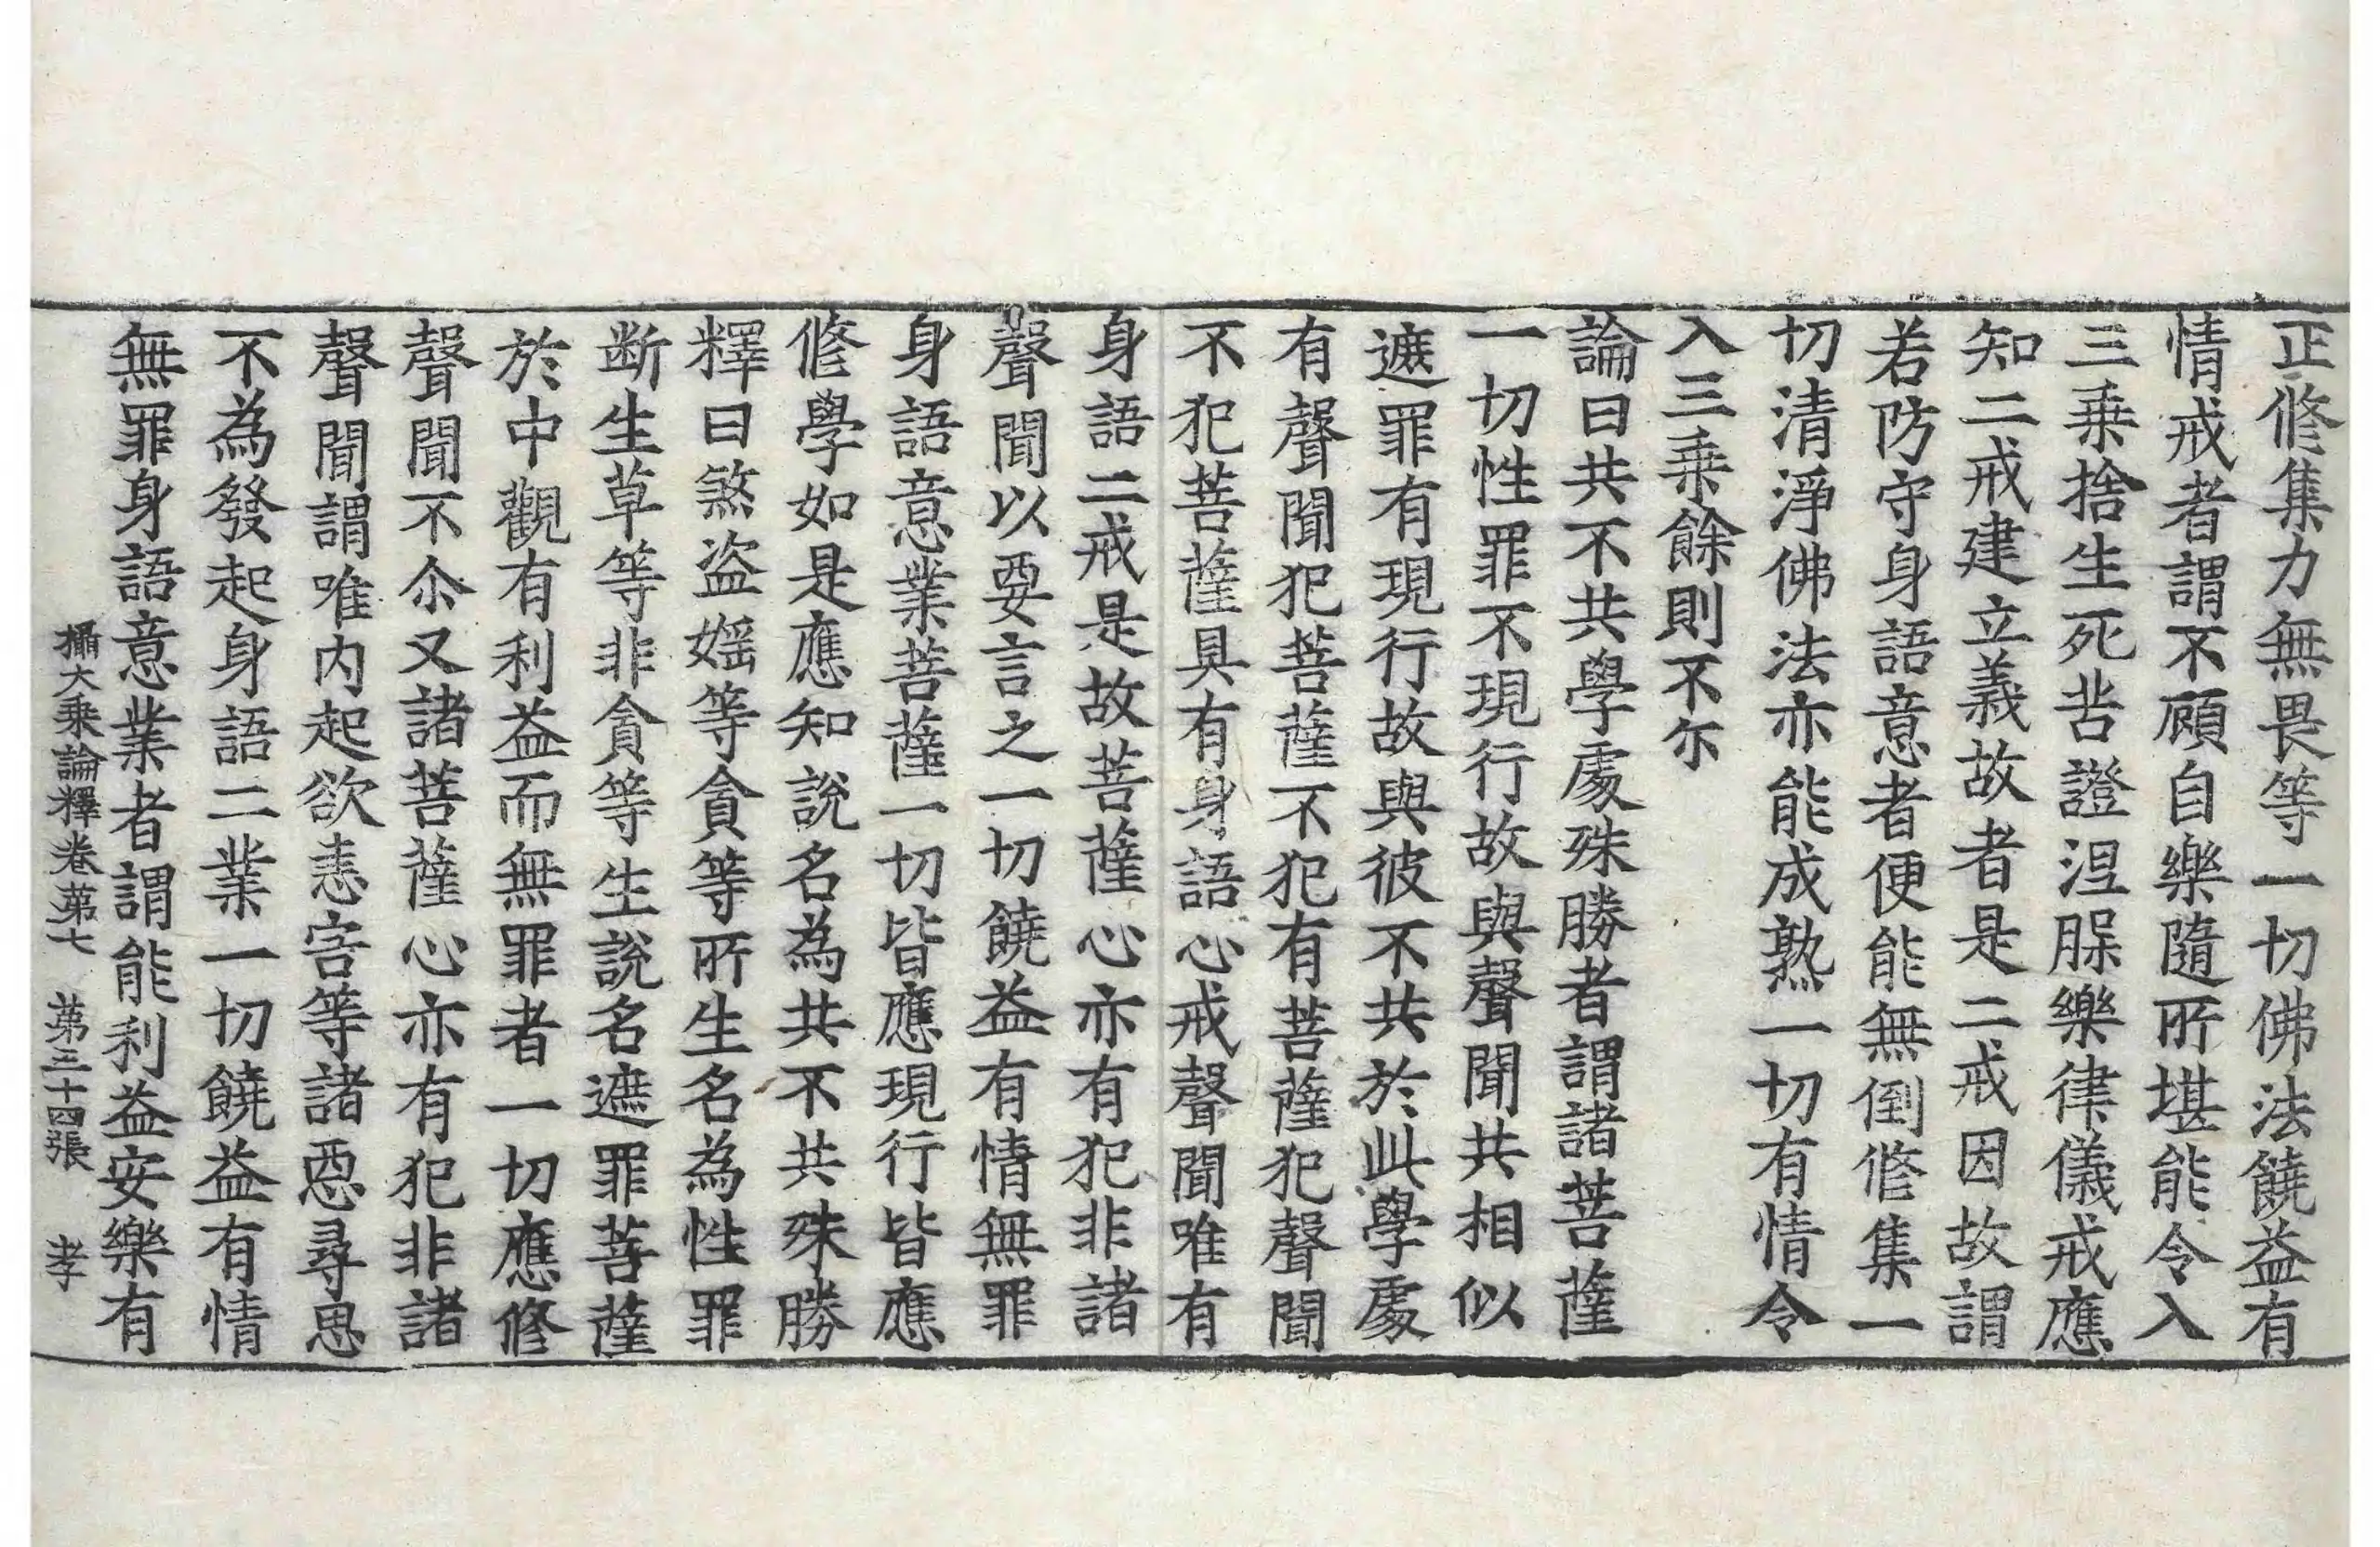 正修集力無畏等一切佛法饒益有
情戒者謂不顧自樂隨所堪能令入
三乗捨生死苦證涅脲樂律儀戒應
知二戒建立義故者是二戒因故謂
若防守身語意者便能無倒修集一
切清淨佛法亦能成熟一切有情令
入三乗餘則不尒
論曰共不共學處殊勝者謂諸菩薩
一切性罪不現行故與聲聞共相似
遮罪有現行故與彼不共於此學處
有聲聞犯菩薩不犯有菩薩犯聲聞
不犯菩薩具有身語心戒聲聞唯有
身語二戒是故菩薩心亦有犯非諸
聲聞以要言之一切饒益有情無罪
身語意業菩薩一切皆應現行皆應
修學如是應知說名為共不共殊勝
釋曰煞盗婬等貪等所生名為性罪
断生草等非貪等生說名遮罪菩薩
於中觀有利益而無罪者一切應修
聲聞不尒又諸菩薩心亦有犯非諸
聲聞謂唯内起欲恚害等諸惡尋思
不為發起身語二業一切饒益有情
無罪身語意業者謂能利益安樂有
攝大乗論釋卷第七 第三十四張 孝